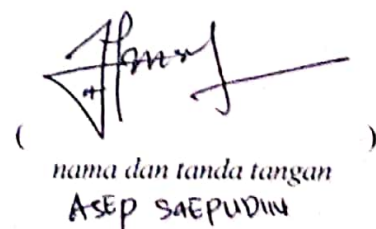 ( )
nama dan tanda tangan
ASEP SAEPUDIN